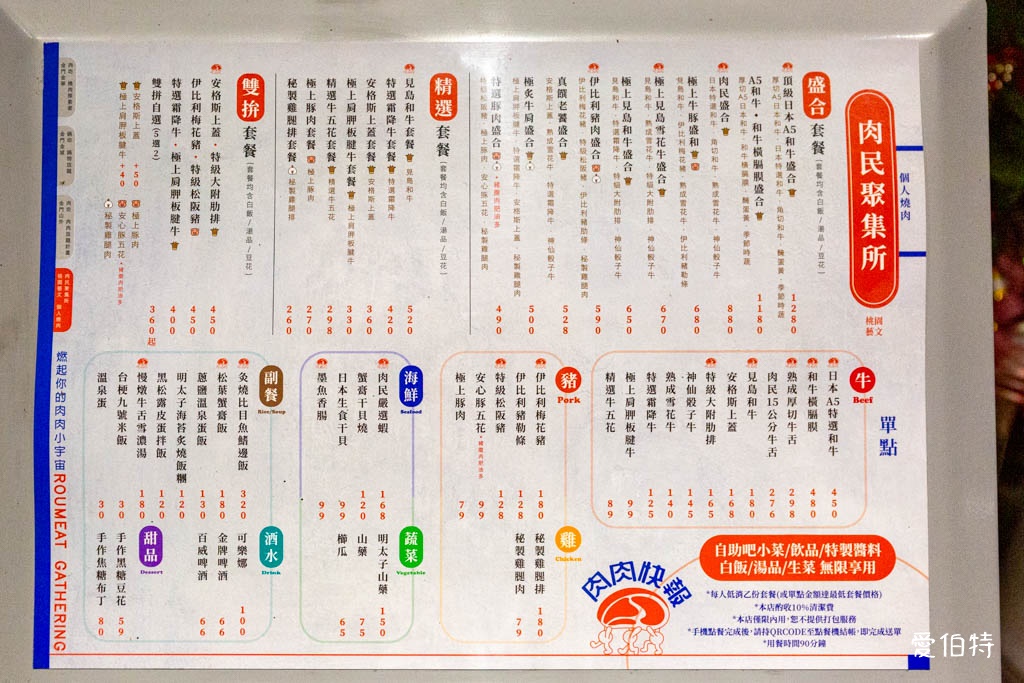 肉民聚集所
個人燒肉
桃園藝文
盛合 套餐 (套餐均含白飯/湯品/豆花)
頂級日本A5和牛盛合 1280
厚切A5日本和牛．日本特選和牛．角切和牛．醃蛋黃．季節時蔬
A5和牛•和牛橫膈膜盛合 1180
厚切A5日本和牛．和牛橫膈膜．醃蛋黃．季節時蔬
肉民盛合 880
日本特選和牛．角切和牛．熟成雪花牛．神仙骰子牛
極上牛豚盛合 680
見島和牛．伊比利梅花豬．熟成雪花牛．伊比利豬肋條
極上見島雪花牛盛合 670
見島和牛．熟成雪花牛．特級大附肋排．神仙骰子牛
極上見島和牛盛合 650
見島和牛．熟成雪花牛．特級大附肋排．神仙骰子牛
伊比利豬肉盛合 590
伊比利梅花豬．特級松阪豬．伊比利豬肋條．秘製雞腿肉
真饌老饕盛合 528
安格斯上蓋．熟成雪花牛．特選霜降牛．神仙骰子牛
極炙牛肩盛合 500
極上肩胛板腱牛．特選霜降牛．安格斯上蓋．秘製雞腿肉
特選豚肉盛合 490
特級松阪豬．極上豚肉．安心豚五花．秘製雞腿肉
*豬腹肉肥油多
精選 套餐 (套餐均含白飯/湯品/豆花)
見島和牛套餐 見島和牛 520
特選霜降牛套餐 特選霜降牛 420
安格斯上蓋套餐 安格斯上蓋 360
極上肩胛板腱牛套餐 極上肩胛板腱牛 330
精選牛五花套餐 精選牛五花 298
極上豚肉套餐 極上豚肉 270
秘製雞腿排套餐 秘製雞腿排 260
雙拚 套餐 (套餐均含白飯/湯品/豆花)
安格斯上蓋•特級大附肋排 450
伊比利梅花豬•特級松阪豬 450
特選霜降牛•極上肩胛板腱牛 400
雙拚自選(5選2) 360起
安格斯上蓋+50 極上豚肉
極上肩胛板腱牛+40 安心豚五花 *豬腹肉肥油多
秘製雞腿肉
單點
牛 Beef
日本A5特選和牛 450
和牛橫膈膜 480
熟成厚切牛舌 298
肉民15公分牛舌 276
見島和牛 180
安格斯上蓋 168
特級大附肋排 165
神仙骰子牛 168
熟成雪花牛 140
特選霜降牛 125
極上肩胛板腱牛 99
精選牛五花 89
豬 Pork
伊比利梅花豬 180
伊比利豬肋條 128
特級松阪豬 128
安心豚五花 *豬腹肉肥油多 99
極上豚肉 79
海鮮 Seafood
肉民嚴選蝦 168
蟹膏干貝燒 120
日本生食干貝 99
墨魚香腸 99
副餐 Rice/Soup
炙燒比目魚鰭邊飯 320
松葉蟹膏飯 180
蔥鹽溫泉蛋飯 130
明太子海苔炙燒飯糰 120
黑松露皮蛋拌飯 120
慢燉牛舌雪濃湯 180
台梗九號米飯 30
溫泉蛋 30
雞 Chicken
秘製雞腿排 180
秘製雞腿肉 79
蔬菜 Vegetable
明太子山藥 150
山藥 75
櫛瓜 65
酒水 Drink
可樂娜 100
金牌啤酒 66
百威啤酒 66
甜品 Dessert
手作黑糖豆花 59
手作焦糖布丁 80
自助吧小菜/飲品/特製醬料
白飯/湯品/生菜 無限享用
肉肉快報
*每人低消乙份套餐(或單點金額達最低套餐價格)
*本店酌收10%清潔費
*本店僅限內用，恕不提供打包服務
*手機點餐完成後，請持QRCODE至點餐機結帳，即完成送單
*用餐時間90分鐘
燃起你的肉肉小宇宙 ROUMEAT GATHERING
愛伯特